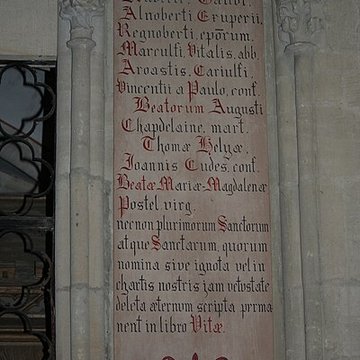 Alnoberti Eruperii,
Regnoberti, epõrum,
Marculfi, Vitalis, abb,
Aroastis, Cariulfi,
Vincentii a Paulo, conf.
Beatorum Augusti
Chapdelaine, mart.
Thomæ Helyæ,
Ioannis Eudes, conf.
Beatæ Mariæ-Magdalenæ
Postel virg.
necnon plurimorum Sanctorum
atque Sanctarum, quorum
nomina sive ignota vel in
chartis nostris jam vetustate
deleta æternum scripta perma
nent in libro Vitæ.